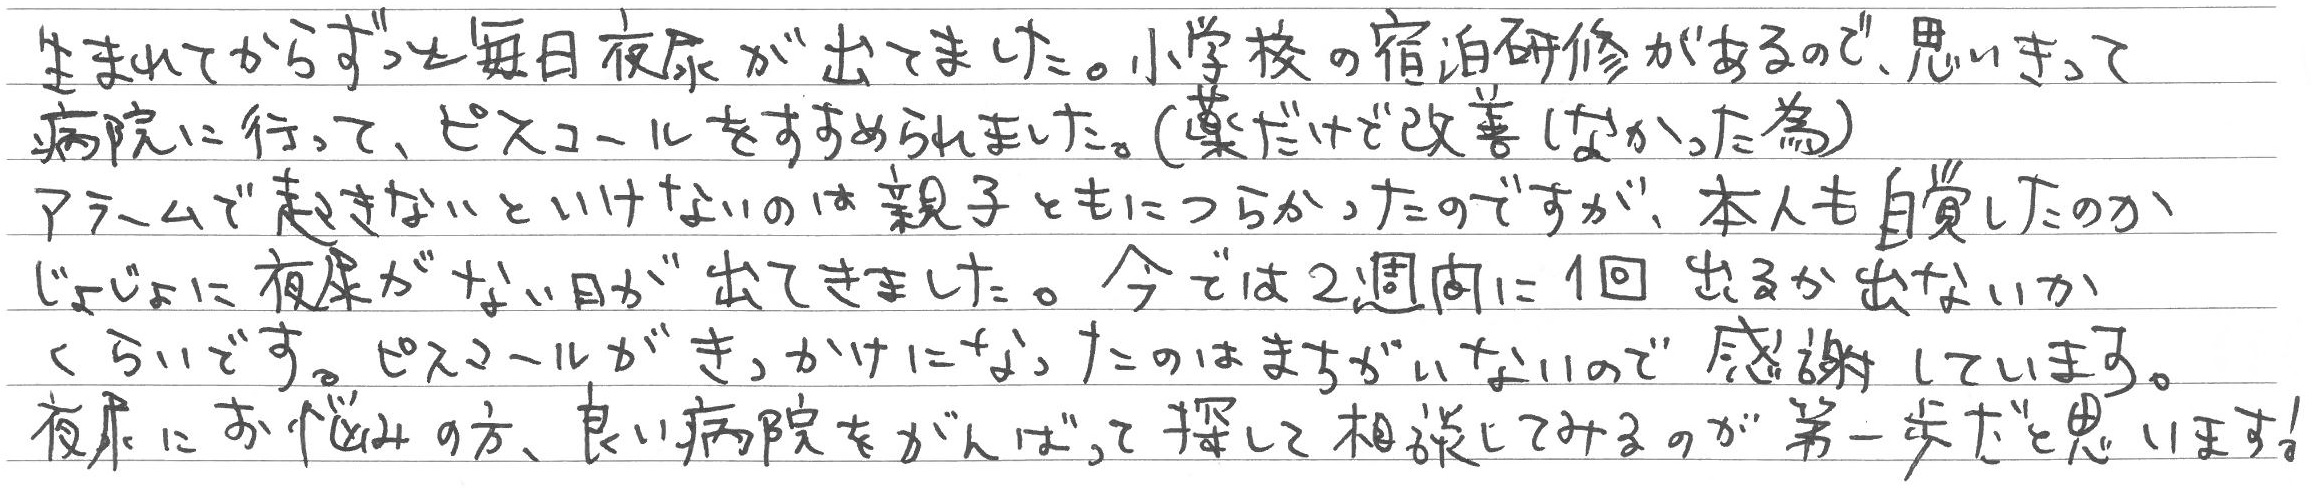 生まれてからずっと毎日夜尿が出てました。小学校の宿泊研修があるので、思いきって
病院に行って、ピスコールをすすめられました。(薬だけで改善しなかった為)
アラームで起きないといけないのは親子ともにつらかったのですが、本人も自覚したのか
じょじょに夜尿がない日が出てきました。今では2週間に1回出るか出ないか
くらいです。ピスコールがきっかけになったのはまちがいないので感謝しています。
夜尿にお悩みの方、良い病院をがんばって探して相談してみるのが第一歩だと思います!